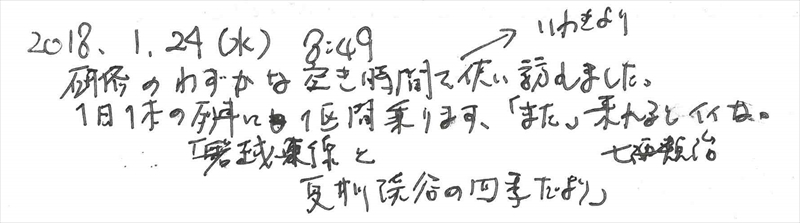 2018. 1. 24 (水) 8:49 いわきより
研修のわずかな空き時間を使い訪れました。
1日1本の列車に1区間乗ります、「また」乗れるとイイな。
「磐越東線と
夏井渓谷の四季だより」